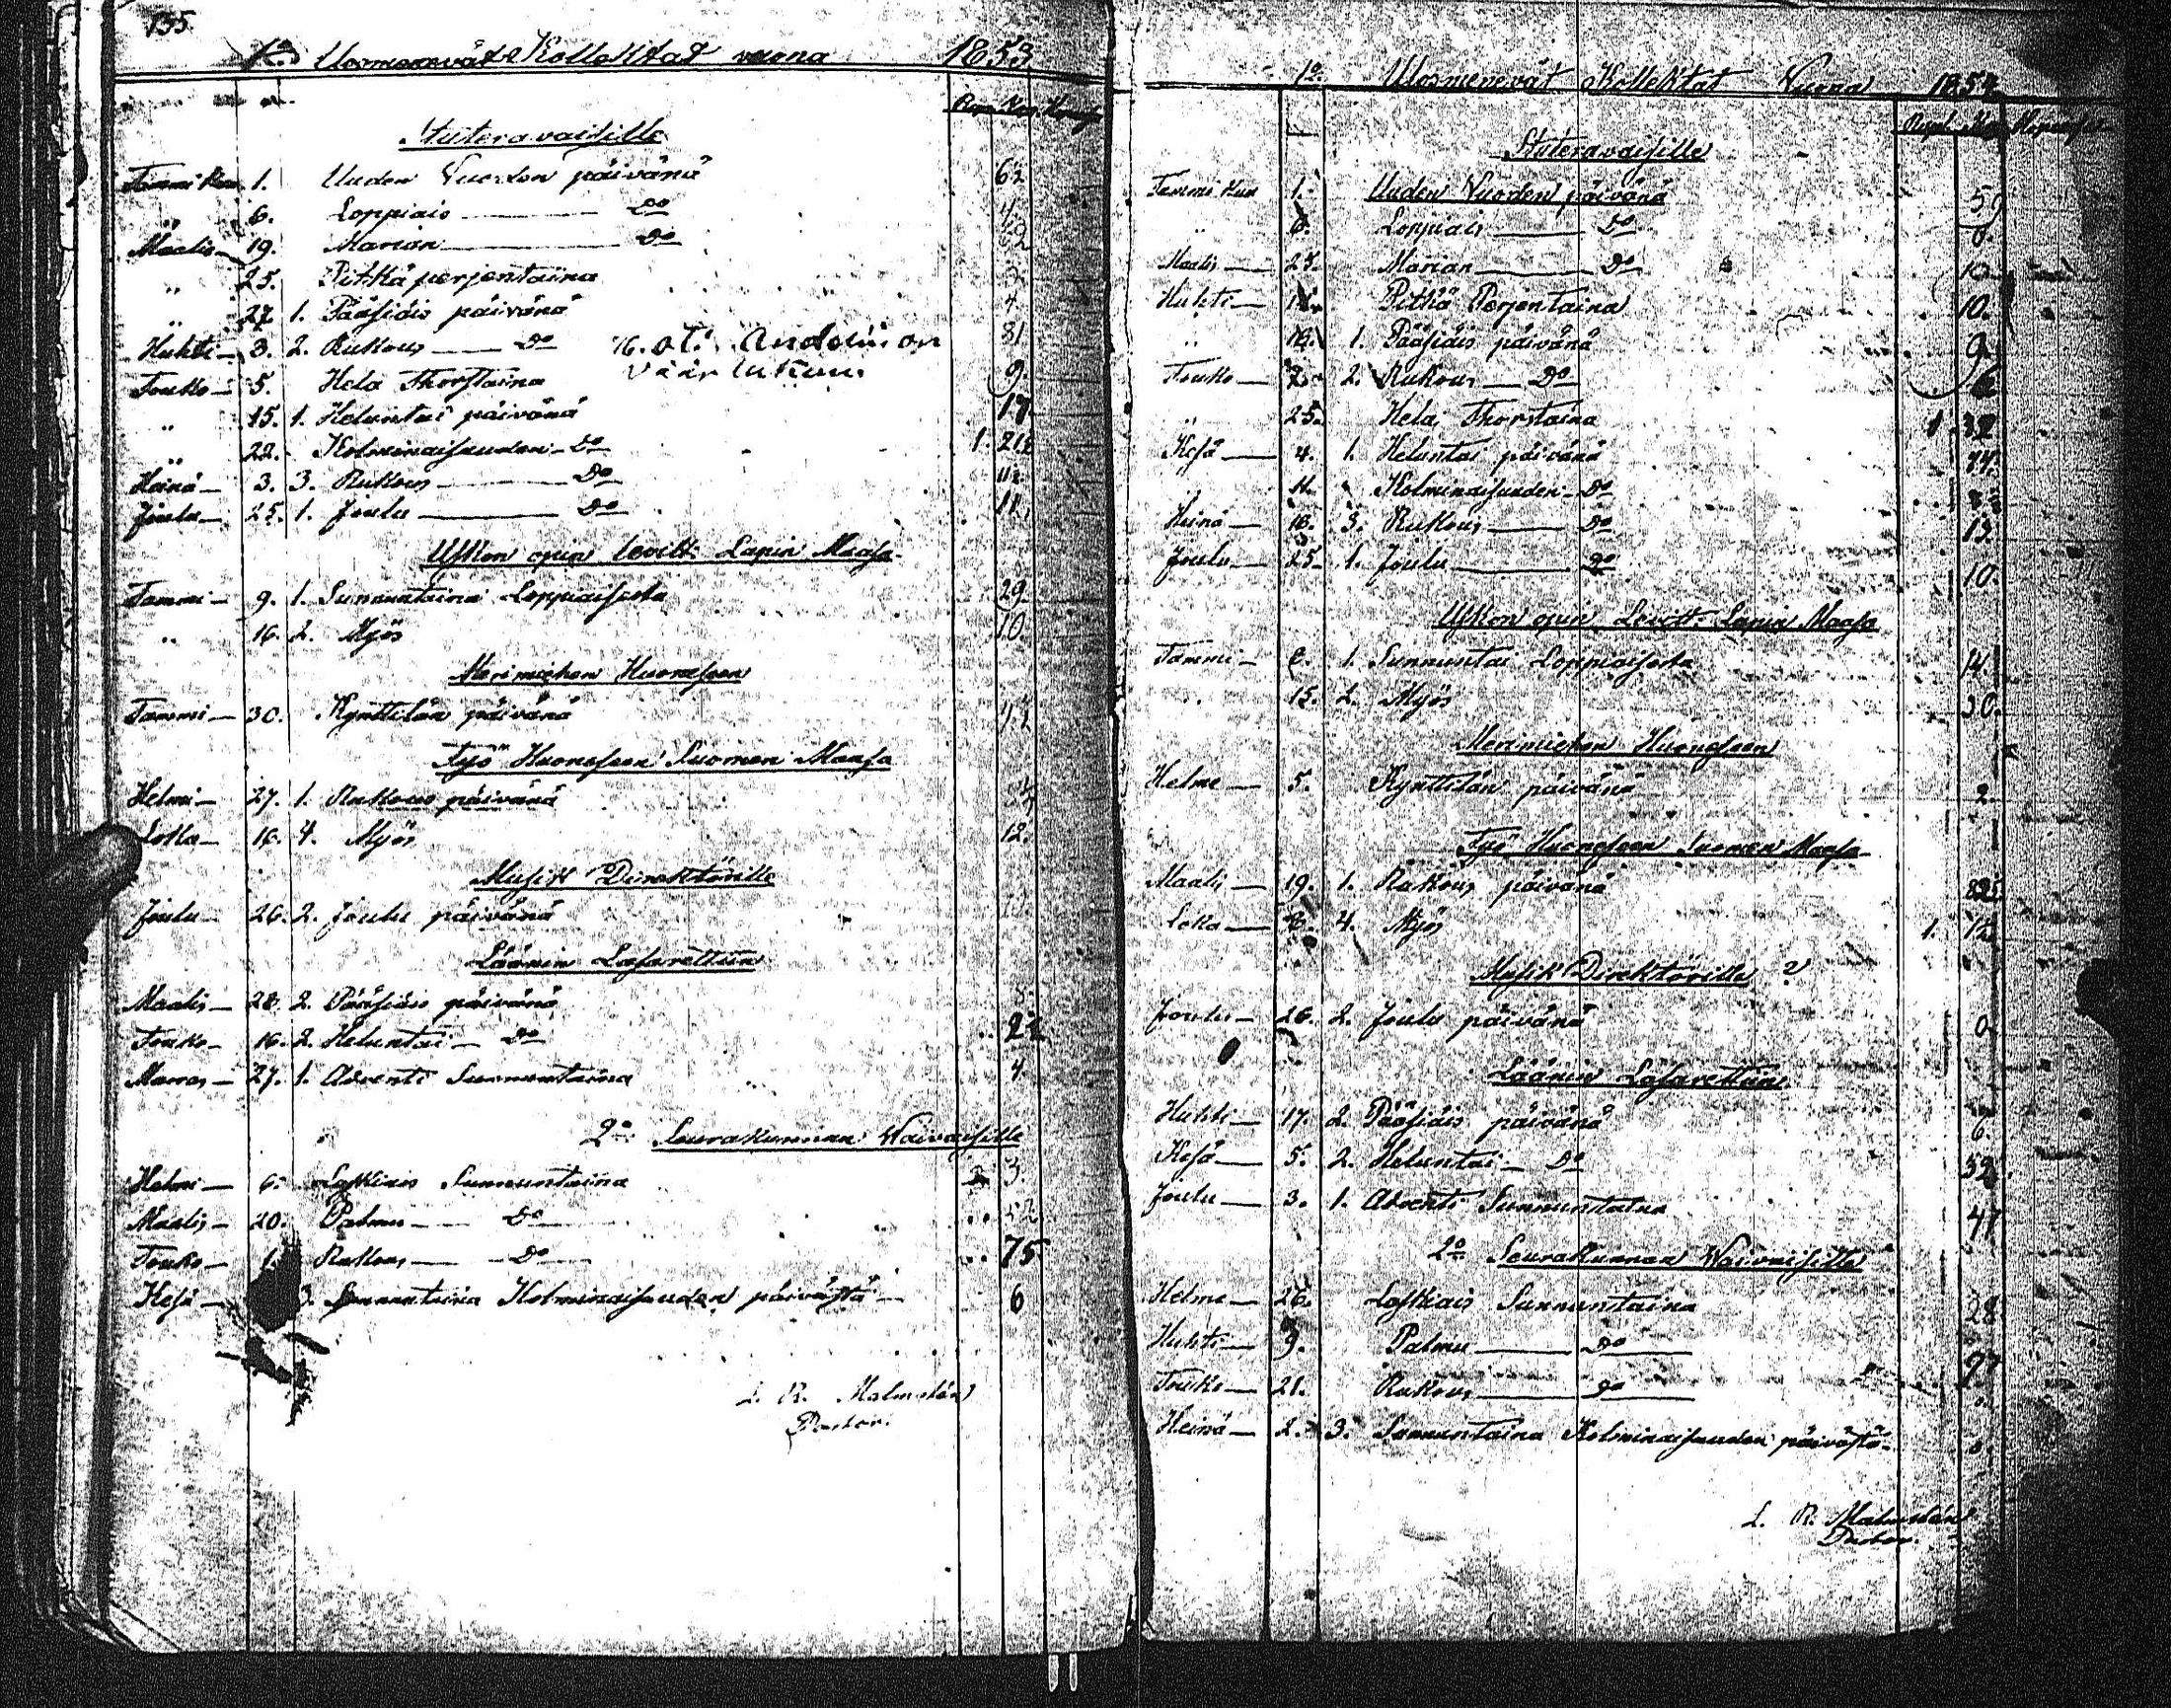 135
1o Uosmenevät Kollektat vuona 1853
Stuteravaisille
Tammi Kuu 1. Uuden Vuoden päivänä 62
" 6. Loppiais — Do
Maalis — 19. Marian — Do
" 25. Pitkä perjentaina
" 27 1. Pääsiäis päivänä 4
Huhti — 3. 2. Rukous — Do 31
Touko — 5. Hela Thorstaina 9.
" 15. 1. Heluntai päivänä 17
22. Kolminaisuuden — Do 1. 21½
Heinä — 3. 3. Rukous — Do
Joulu — 25. 1. Joulu — Do 11.
Uskon opin levitt: Lapin Maasa
Tammi — 9. 1. Sunnuntaina Loppiaisesta 29.
" 16. 2. Myös 10.
Merimiehen Huoneseen
Tammi — 30. Kynttilän päivänä
Työ Huoneseen Suomen Maasa
Helmi — 27. 1. Rukous päivänä
Loka — 16. 4. Myös 12.
Musik Direktörille
Joulu — 26. 2. Joulu päivänä
Läänin Lasarettiin
Maalis — 28. 2. Pääsiäis päivänä
Touko — 16. 2. Heluntai — Do
Marras — 27. 1. Adventi Sunnuntaina 4.
2o Seurakunnan Waivaisille
Helmi — 6. Laskiais Sunnuntaina 3.
Maalis — 20. Palmu — Do
Touko — 1. Rukous — Do 75
Kesä — 3. Sunnuntaina Kolminaisuuden päivästä — 6
L. R. Malmstén
Pastor.
1o Ulosmenevät Kollektat Vuona 1854
Stuteravaisille
Tammi Kuu 1. Uuden Vuoden päivänä
" 6. Loppiais — Do
Maalis — Marian — Do
Huhti — 14. Pitkä Perjentaina 10.
" 16. 1. Pääsiäis päivänä 9.
Touko — 7. 2. Rukous — Do 6
" 25. Hela Thorstaina 1 32
Kesä — 4. 1. Heluntai päivänä
11. Kolminaisuuden — Do
Heinä — 16. 3. Rukous — Do 13
Joulu — 25. 1. Joulu — Do 10.
Uskon opin Levitt: Lapin Maasa
Tammi — 1. Sunnuntai Loppiaisesta 14.
" 15. 2. Myös 30.
Merimiehen Huoneseen
Helme — 5. Kynttilän päivänä 2.
Työ Huoneseen Suomen Maasa
Maalis — 19. 1. Rukous päivänä
Loka — 8. 4. Myös 1.
Musik Direktörille
Joulu — 26. 2. Joulu päivänä 0.
Läänin Lasarettiin
Huhti — 17. 2. Pääsiäis päivänä 6.
Kesä — 5. 2. Heluntai — Do 52
Joulu — 3. 1. Adventi Sunnuntaina 41
2o Seurakunnan Waivaisille
Helme — 26. Laskiais Sunnuntaina 28
Huhti — 9. Palmu — Do 27
Touko — 21. Rukous — Do
Heinä — 2. 3. Sunnuntaina Kolminaisuuden päivästä —
L. R. Malmstén
Pastor.